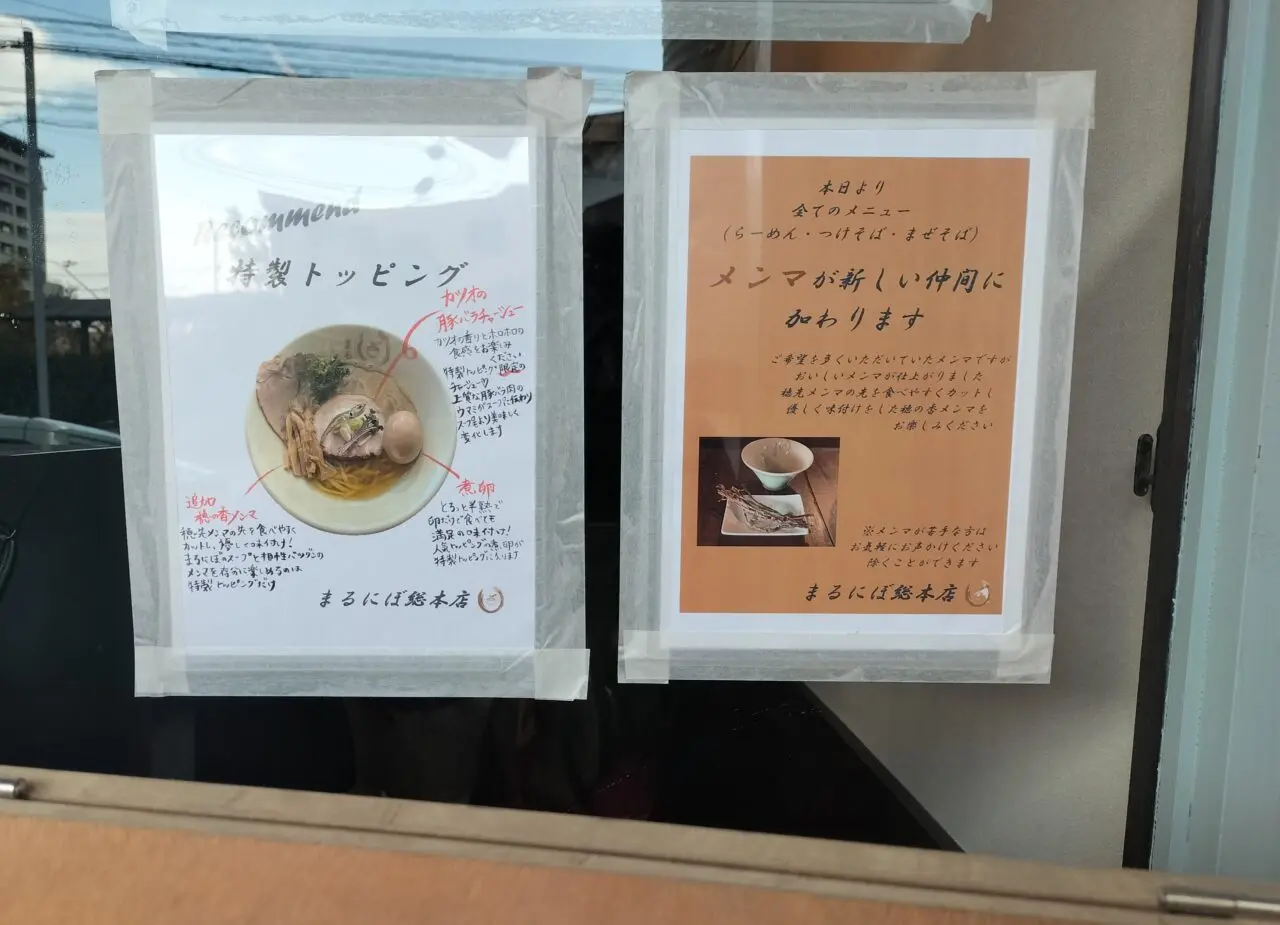 Recommend
特製トッピング
カツオの
豚バラチャーシュー
カツオの香りとホロホロの
食感をお楽しみ
ください
特製トッピング限定の
チャーシュー!!
上質な豚バラ肉の
ウマミがスープに伝わり
スープもより美味しく
変化します
追加
穂の香メンマ
穂先メンマの先を食べやすく
カットし、優しく味付け!
まるにぼのスープと相性バツグンの
メンマを存分に楽しめるのは
特製トッピングだけ
煮卵
とろっと半熟で
卵だけで食べても
満足の味付け!
人気トッピングの煮卵が
特製トッピングに入ります
まるにぼ総本店
本日より
全てのメニュー
(らーめん・つけそば・まぜそば)
メンマが新しい仲間に
加わります
ご希望を多くいただいていたメンマですが
おいしいメンマが仕上がりました
穂先メンマの先を食べやすくカットし
優しく味付けをした穂の香メンマを
お楽しみください
※メンマが苦手な方は
お気軽にお声かけください
除くことができます
まるにぼ総本店